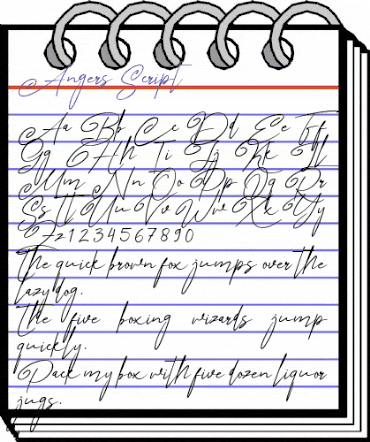 Angers Script
Aa Bb Cc Dd Ee Ff
Gg Hh Ii Jj Kk Ll
Mm Nn Oo Pp Qq Rr
Ss Tt Uu Vv Ww Xx Yy
Zz1234567890
The quick brown fox jumps over the
lazy dog.
The five boxing wizards jump
quickly.
Pack my box with five dozen liquor
jugs.